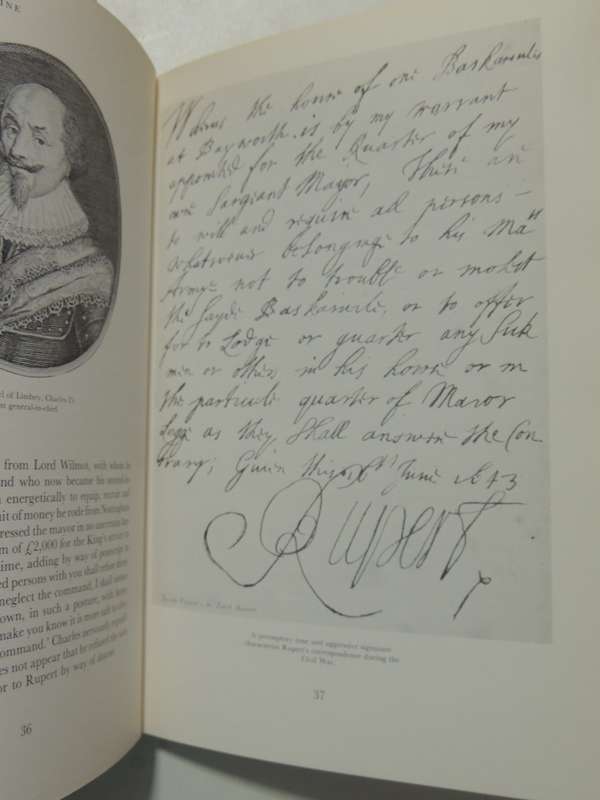 INE
l of Lindsey, Charles I's
nt general-in-chief
from Lord Wilmot, with whom he
and who now became his
n energetically to equip, recruit and
uit of money he rode from Nottingham
ressed the mayor in no uncertain
m of £2,000 for the King's service
ime, adding by way of postscript
ed persons with you shall
neglect the command, I shall
own, in such a posture, with
make you know it is more
ommand.' Charles
es not appear that he
or to Rupert by way of
36
Wheras the house of one Baskarvile
at Bayworth is by my warrant
appointed for the Quarter of my
owne Sargeant Mayor, These are
to will and require all persons
whatsoever belonginge to his Matis
Army not to trouble or molest
the sayde Baskarvile, or to offer
for to Lodge or quarter any
men or others in his howse or in
the particuler quarter of Maior
as they shall answere the Con
trary; Given this June 1643
Rupert
A peremptory tone and aggressive signature
characterize Rupert's correspondence during the
Civil War.
37